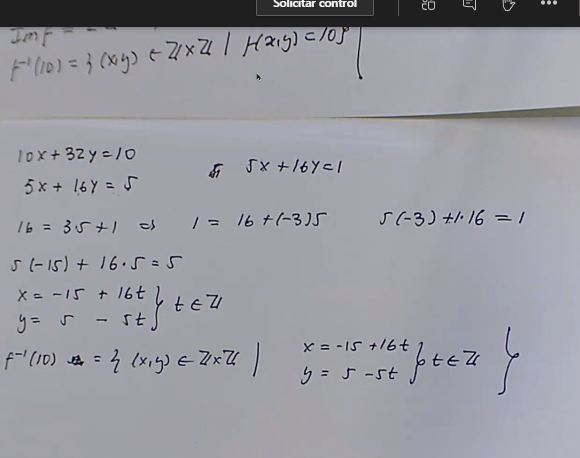 Solicitar control
Im f =
f⁻¹(10) = { (x,y) ∈ ℤ×ℤ | f(x,y) = 10}
10x + 32y = 10
5x + 16y = 1
5x + 16y = 5
16 = 3·5 + 1 ⇒ 1 = 16 + (-3)5 5(-3) + 1·16 = 1
5(-15) + 16·5 = 5
x = -15 + 16t
y = 5 - 5t } t ∈ ℤ
f⁻¹(10) = { (x,y) ∈ ℤ×ℤ | x = -15 + 16t
y = 5 - 5t } t ∈ ℤ }